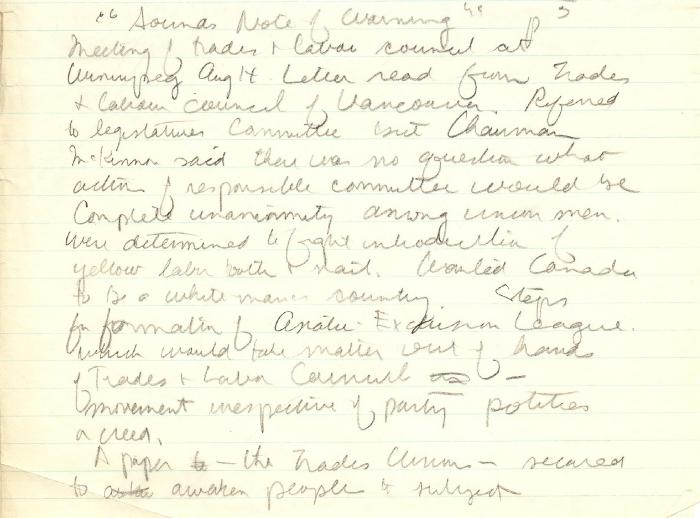 "Sounds Note of Warning" p 5
Meeting of trades & labor council at
Winnipeg Aug 14. Letter read from Trades
& Labour council of Vancouver. Referred
to legislature Committee but Chairman
McKinnon said there was no question what
action of responsible committee would be
Complete unanimity among union men.
Were determined to fight introduction of
yellow labor tooth & nail. Wanted Canada
to be a white mans country. Steps
for formation of Asiatic Exclusion League.
which would take matter out of hands
of Trades & Labor Council —
movement irrespective of party politics
or creed.
A paper — the Trades Union — secured
to awaken people to subject